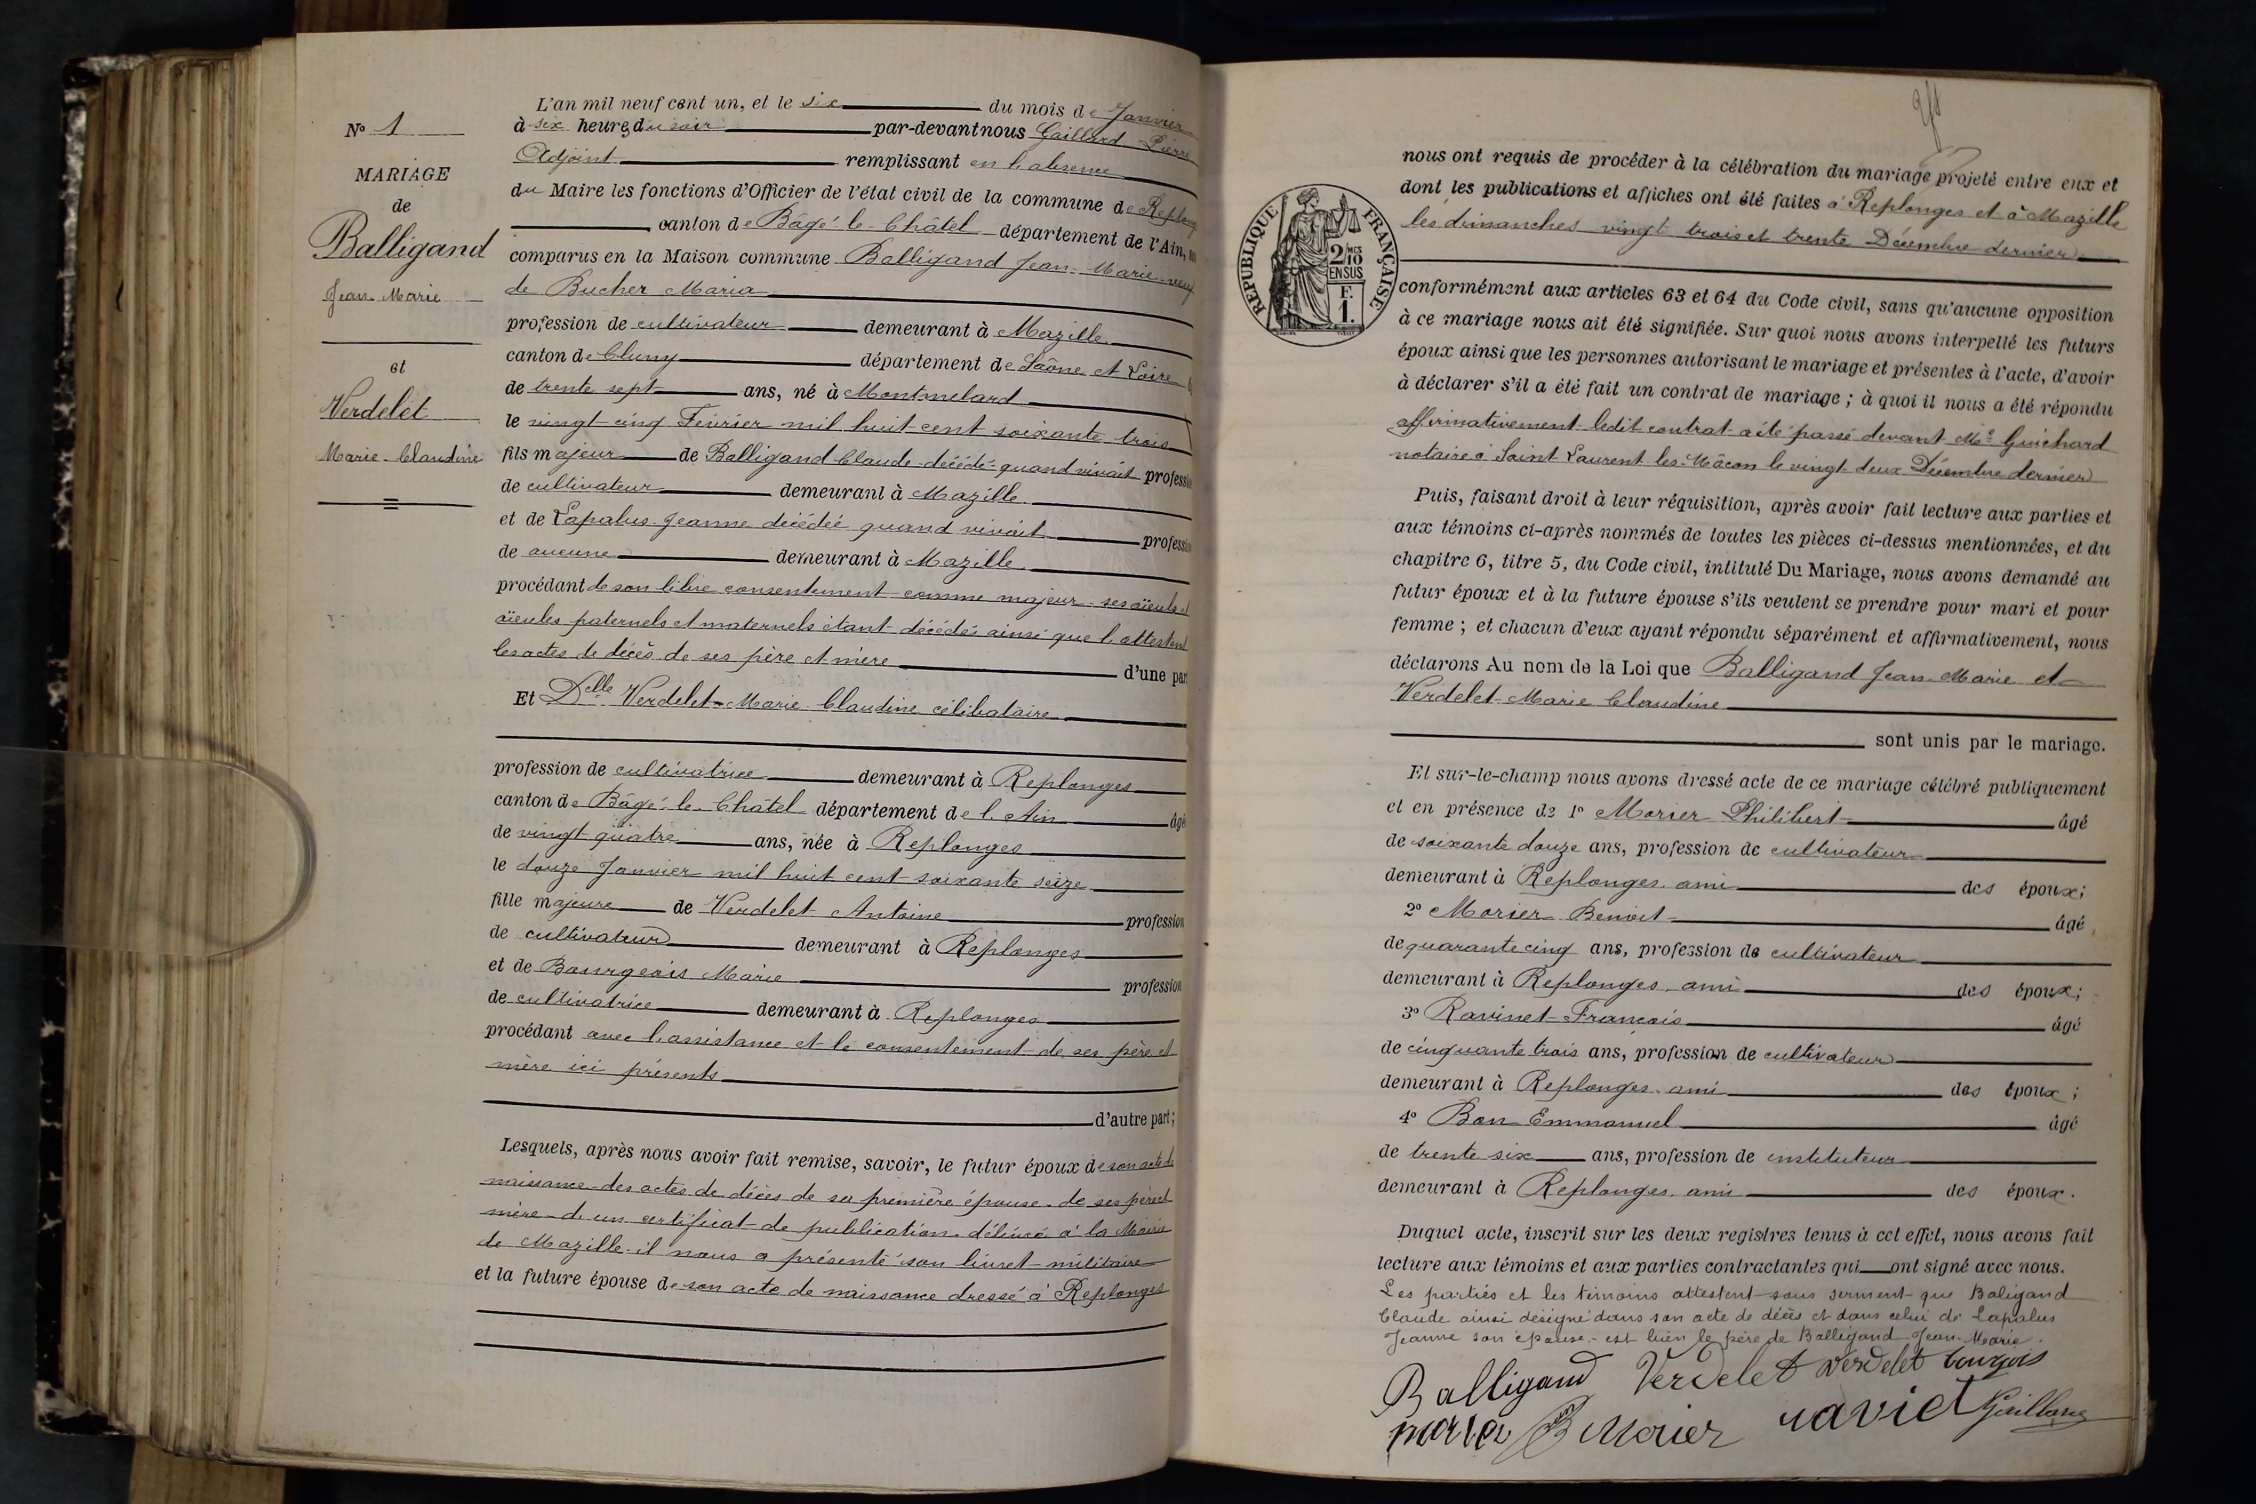 N° 1
MARIAGE
de
Balligand
Jean-Marie
et
Verdelet
Marie-Claudine
L'an mil neuf cent un, et le six du mois de Janvier
à six heures du soir par-devant nous Gaillard Pierre
Adjoint remplissant en l'absence
du Maire les fonctions d'Officier de l'état civil de la commune de Replonges
canton de Bâgé-le-Châtel département de l'Ain,
comparus en la Maison commune Balligand Jean-Marie veuf
de Bucher Maria
profession de cultivateur demeurant à Mazille
canton de Cluny département de Saône et Loire
de trente sept ans, né à Montmelard
le vingt cinq Février mil huit cent soixante trois
fils majeur de Balligand Claude décédé quand vivait profession
de cultivateur demeurant à Mazille
et de Lapalus Jeanne décédée quand vivait profession
de aucune demeurant à Mazille
procédant de son libre consentement comme majeur ses aïeuls et
aïeules paternels et maternels étant décédés ainsi que l'attestent
les actes de décès de ses père et mère d'une part
Et Delle Verdelet Marie Claudine célibataire
profession de cultivatrice demeurant à Replonges
canton de Bâgé-le-Châtel département de l'Ain âgé
de vingt quatre ans, née à Replonges
le douze Janvier mil huit cent soixante seize
fille majeure de Verdelet Antoine profession
de cultivateur demeurant à Replonges
et de Bourgeois Marie profession
de cultivatrice demeurant à Replonges
procédant avec l'assistance et le consentement de ses père et
mère ici présents
d'autre part;
Lesquels, après nous avoir fait remise, savoir, le futur époux de son acte de
naissance des actes de décès de sa première épouse, de ses père et
mère d'un certificat de publication délivré à la Mairie
de Mazille il nous a présenté son livret militaire
et la future épouse de son acte de naissance dressé à Replonges
RÉPUBLIQUE FRANÇAISE
2/10 MES
EN SUS
F.
1.
nous ont requis de procéder à la célébration du mariage projeté entre eux et
dont les publications et affiches ont été faites à Replonges et à Mazille
les dimanches vingt trois et trente Décembre dernier
conformément aux articles 63 et 64 du Code civil, sans qu'aucune opposition
à ce mariage nous ait été signifiée. Sur quoi nous avons interpellé les futurs
époux ainsi que les personnes autorisant le mariage et présentes à l'acte, d'avoir
à déclarer s'il a été fait un contrat de mariage; à quoi il nous a été répondu
affirmativement ledit contrat a été passé devant Me Guichard
notaire à Saint Laurent les Mâcon le vingt deux Décembre dernier
Puis, faisant droit à leur réquisition, après avoir fait lecture aux parties et
aux témoins ci-après nommés de toutes les pièces ci-dessus mentionnées, et du
chapitre 6, titre 5, du Code civil, intitulé Du Mariage, nous avons demandé au
futur époux et à la future épouse s'ils veulent se prendre pour mari et pour
femme; et chacun d'eux ayant répondu séparément et affirmativement, nous
déclarons Au nom de la Loi que Balligand Jean Marie et
Verdelet Marie Claudine
sont unis par le mariage.
Et sur-le-champ nous avons dressé acte de ce mariage célébré publiquement
et en présence de 1° Morier Philibert âgé
de soixante douze ans, profession de cultivateur
demeurant à Replonges ami des époux;
2° Morier Benoit âgé
de quarante cinq ans, profession de cultivateur
demeurant à Replonges, ami des époux;
3° Ravinet François âgé
de cinquante trois ans, profession de cultivateur
demeurant à Replonges ami des époux;
4° Bon Emmanuel âgé
de trente six ans, profession de instituteur
demeurant à Replonges, ami des époux.
Duquel acte, inscrit sur les deux registres tenus à cet effet, nous avons fait
lecture aux témoins et aux parties contractantes qui ont signé avec nous.
Les parties et les témoins attestent sous serment que Baligand
Claude ainsi désigné dans son acte de décès et dans celui de Lapalus
Jeanne son épouse, est bien le père de Balligand Jean Marie.
Balligand Verdelet verdelet
B Morier Gaillard